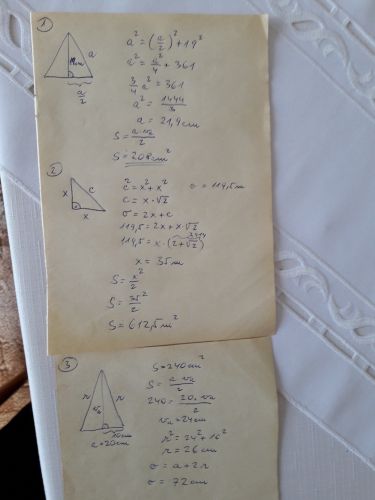 1
19cm
a
a/2
a² = (a/2)² + 19²
a² = a²/4 + 361
3/4 a² = 361
a² = 1444/3
a = 21,9cm
S = a·va/2
S = 208cm²
2
x
c
x
c² = x² + x²
o = 114,5m
c = x·√2
o = 2x + c
114,5 = 2x + x·√2
114,5 = x·(2+√2)
x = 35m
S = x²/2
S = 35²/2
S = 612,5m²
3
r
r
va
10cm
a=20cm
S=240cm²
S = a·va/2
240 = 20·va/2
va = 24cm
r² = 24² + 10²
r = 26cm
o = a + 2r
o = 72cm